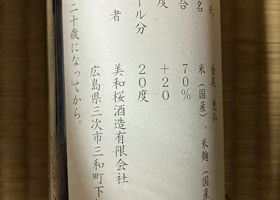 名 米(国産)、米麹(国産
合 70%
度 +20
ール分 20度
者 美和桜酒造有限会社
広島県三次市三和町下
二十歳になってから。